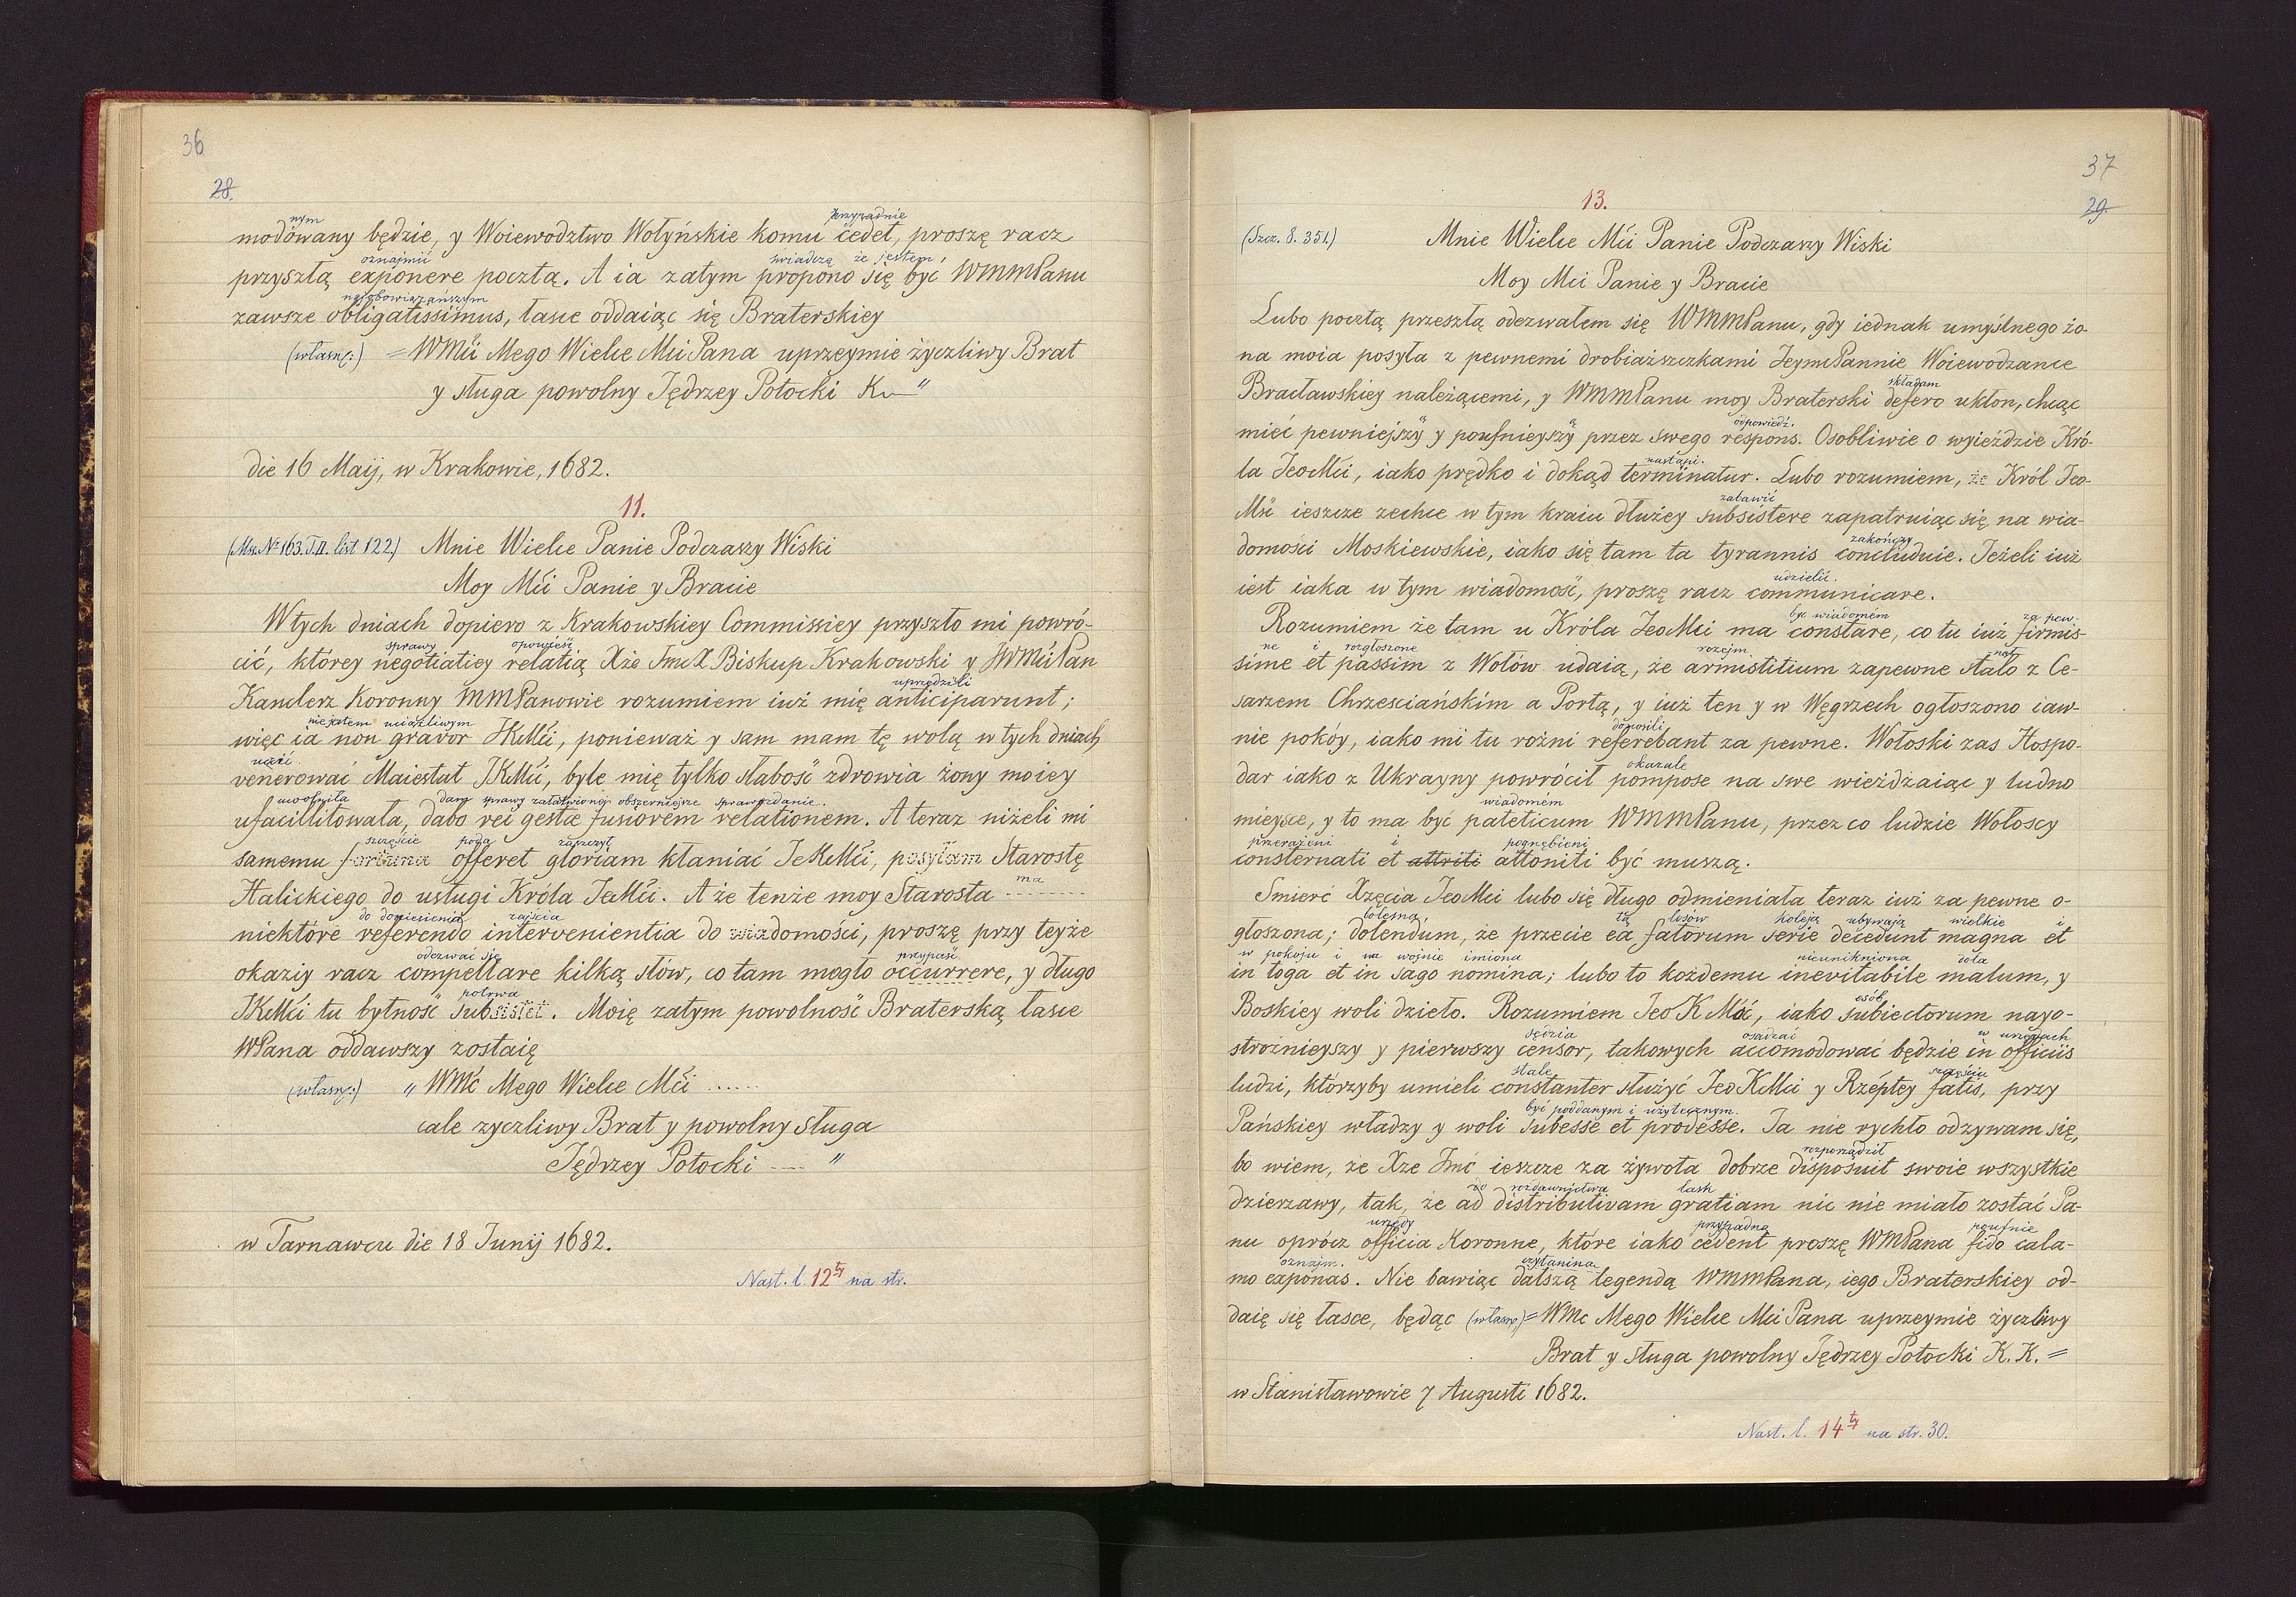 36
28.
nym przypadnie
modowany będzie, y Woiewodztwo Wołyńskie komu cedet, proszę racz
oznajmić świadczą że jestem,
przyszłą exponere pocztą. A ia zatym propono się być WMMPanu
najobowiązańszym
zawsze obligatissimus, łasce oddaiąc się Braterskiey
(własnę:) = WMći Mego Wielce Mći Pana uprzeymie życzliwy Brat
y sługa powolny Jędrzey Potocki K "
die 16 Maij, w Krakowie, 1682.
11.
(Ms. No 163. T.II. list 122.) Mnie Wielce Panie Podczaszy Wiski
Moy Mći Panie y Bracie
W tych dniach dopiero z Krakowskiey Commissiey przyszło mi powró-
sprawy opowieść
cić, którey negotiatiey relatią Xże Jmć X Biskup Krakowski y JWMći Pan
uprzedzili
Kanclerz Koronny MMPanowie rozumiem iuż mię anticiparunt;
nie jestem uciążliwym
więc ia non gravor JKMći, ponieważ y sam mam tę wolą w tych dniach
uczci.
venerować Maiestat JKMći, byle mię tylko słabość zdrowia żony moiey
uwolniła dam sprawy załatwionéj obszerniejsze sprawozdanie.
ufacillitowała, dabo rei gestae fusiorem relationem. A teraz niżeli mi
szczęście poda zaszczyt
samemu fortuna offeret gloriam kłaniać JeKMći, posyłam Starostę
ma
Halickiego do usługi Króla JeMći. A że tenże moy Starosta ........
do doniesienia zajścia
niektóre referendo intervenientia do wiadomości, proszę przy teyże
odezwać się przypaść
okaziy racz compellare kilką słów, co tam mogło occurrere, y długo
potrwa
JKMći tu bytność subsistet. Moię zatym powolność Braterską łasce
WPana oddawszy zostaię
(własnę:) „ WMć Mego Wielce Mći ......
cale zyczliwy Brat y powolny sługa
Jędrzey Potocki .... "
w Tarnawcu die 18 Junij 1682.
Nast. l. 12ty na str.
37
29.
13.
(Szcz. 8. 351.) Mnie Wielce Mći Panie Podczaszy Wiski
Moy Mci Panie y Bracie
Lubo pocztą przeszłą odezwałem się WMMPanu, gdy iednak umyślnego żo-
na moia posyła z pewnemi drobiaższczkami JeymcPannie Woiewodzance
składam
Bracławskiey należącemi, y WMMPanu moy Braterski defero ukłon, chcąc
odpowiedź.
mieć pewniejszÿ y poufnieyszą przez swego respons. Osobliwie o wyieździe Kró-
nastąpi.
la JeoMći, iako prędko i dokąd terminatur. Lubo rozumiem, że Król Jeo-
zabawić
Mć ieszcze zechce w tym kraiu dłużey subsistere zapatruiąc się na wia-
zakończy
domości Moskiewskie, iako się tam ta tyrannis concluduie. Jeżeli iuż
udzielić.
iest iaka w tym wiadomość, proszę racz communicare.
być wiadomém za pew-
Rozumiem że tam u Króla JeoMci ma constare, co tu iuż firmis-
ne i rozgłoszone rozejm
sime et passim z Wołów udaią, że armistitium zapewne stało z Ce-
sarzem Chrzesciańskim a Portą, y iuż ten y w Węgrzech ogłoszono iaw-
donosili
nie pokóy, iako mi tu rożni referebant za pewne. Wołoski zas Hospo-
okazale
dar iako z Ukrayny powrócił pompose na swe wieżdżaiąc y ludno
wiadomém
mieysce, y to ma być pateticum WMMPanu, przez co ludzie Wołoscy
przerażeni i pognębieni
consternati et attriti attoniti być muszą.
Smierć Xzęcia JeoMci lubo się długo odmieniała teraz iuż za pewne o-
bolesna, tą losów koleją ubywają wielkie i
głoszona; dolendum, że przecie ea fatorum serie decedunt magna et
w pokoju i na wojnie imiona nieunikniona dola
in toga et in sago nomina; lubo to kożdemu inevitabile malum, y
osób
Boskiey woli dzieło. Rozumiem Jeo K Mć, iako subiectorum nayo-
sędzia osadzać w urzędach
strożnieyszy y pierwszy censor, takowych accomodować będzie in officiis
stale szczęściu
ludzi, którzyby umieli constanter służyć Jeo KMci y Rzéptey fatis, przy
być poddanym i użytecznym.
Pańskiey władzy y woli subesse et prodesse. Ja nie rychło odzywam się,
rozporządził
bo wiem, że Xze Jmć ieszcze za żywota dobrze disposuit swoie wszystkie
do rozdawnictwa łask
dzierzawy, tak, że ad distributivam gratiam nic nie miało zostać Pa-
urzędy przypadną poufnie
nu oprócz officia Koronne, które iako cedent proszę WMPana fido cala-
oznajm. czytaniną
mo exponas. Nie bawiąc dalszą legendą WMMPana, iego Braterskiey od-
daię się łasce, będąc (własn:) = WMc Mego Wielce Mci Pana uprzeymie życzliwy
Brat y sługa powolny Jędrzey Potocki K. K. =
w Stanisławowie 7 Augusti 1682.
Nast. l. 14ty na str. 30.